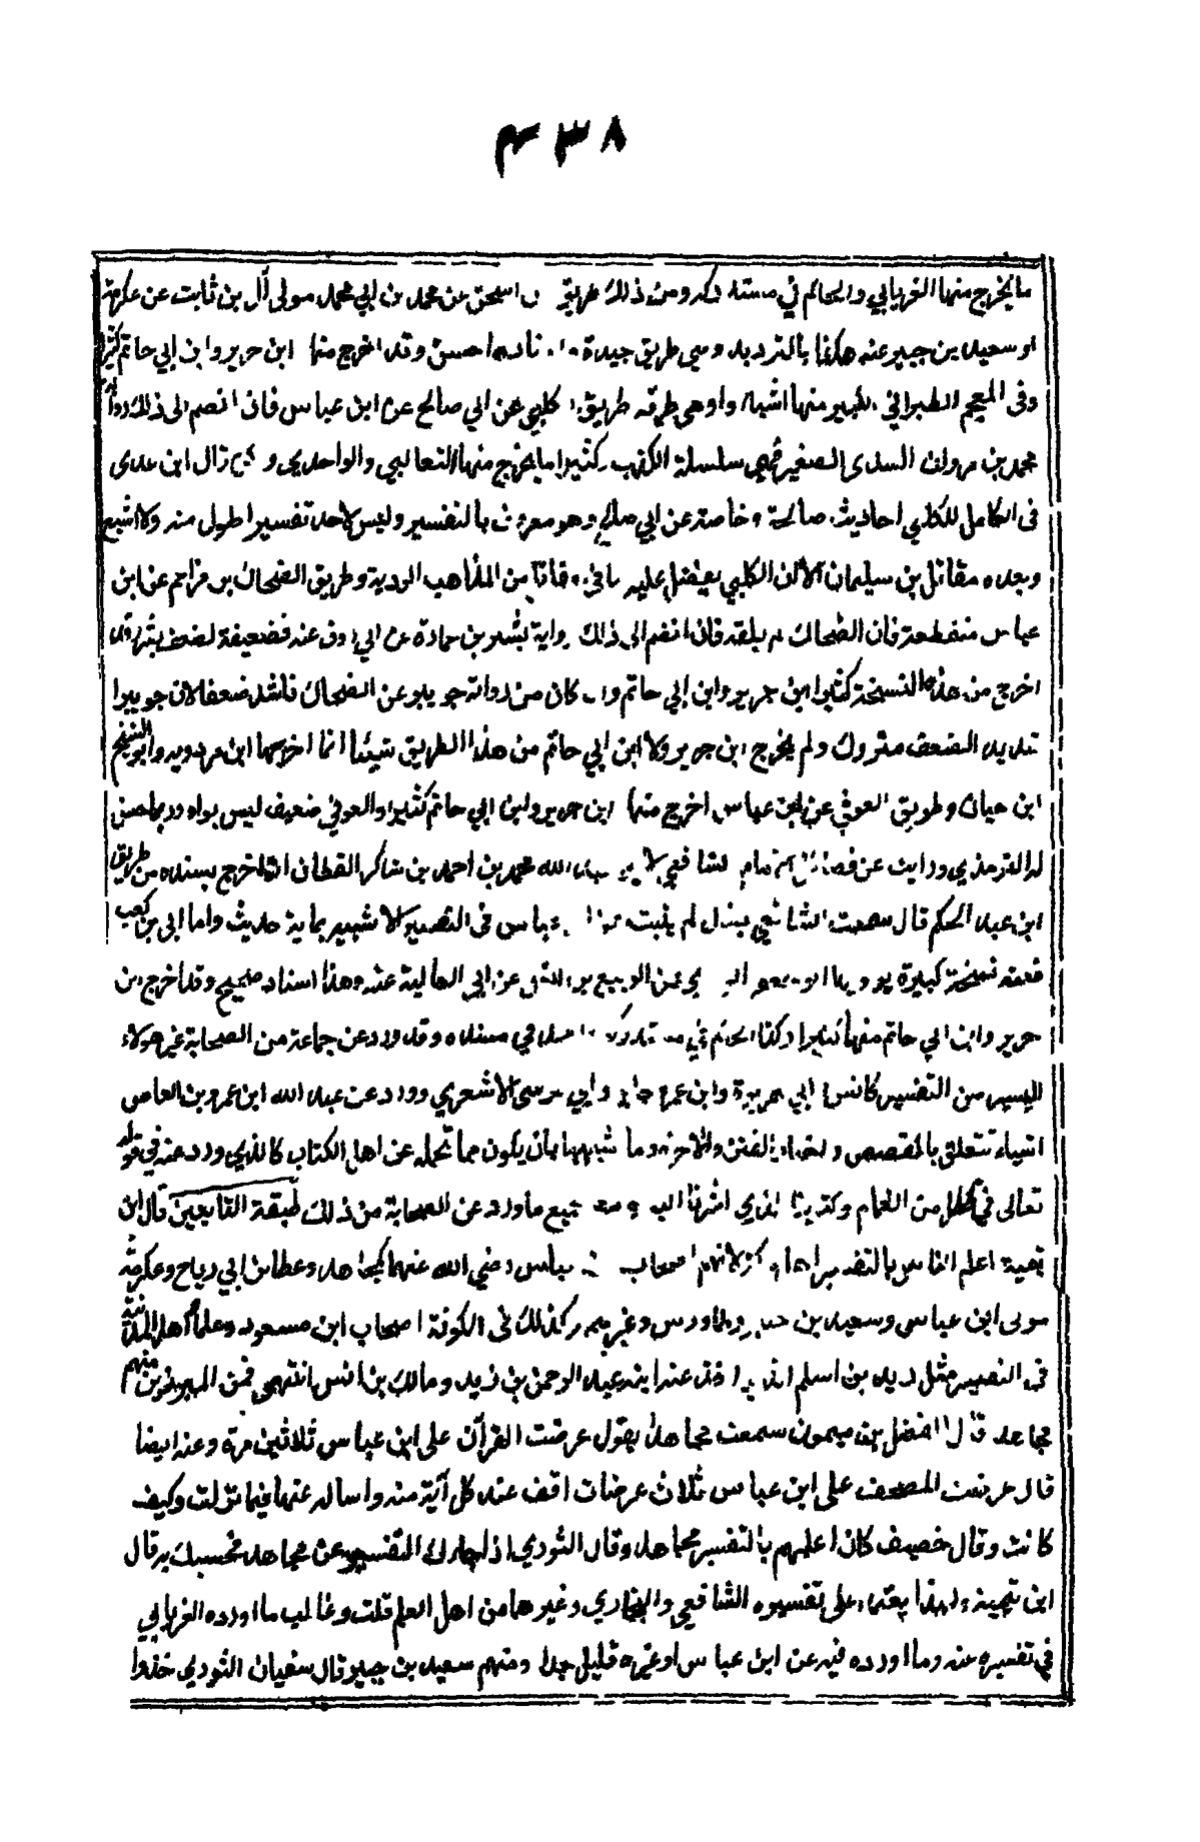 ٤٣٨
ما يخرج منها الفريابي والحاكم في مستدركه ومن ذلك طريق ابن اسحق عن محمد بن ابي محمد مولى آل بن ثابت عن عكرمة
او سعيد بن جبير عنه هكذا بالترديد وهي طريق جيدة واسنادها حسن وقد اخرج منها ابن جرير وابن ابي حاتم كثيرا
وفى المعجم الطبراني الكبير منها اشياء واوهى طرقه طريق الكلبي عن ابي صالح عن ابن عباس فان انضم الى ذلك رواية
محمد بن مروان السدى الصغير فهي سلسلة الكذب وكثيرا ما يخرج منها الثعالبي والواحدي و قال ابن عدى
فى الكامل للكلبي احاديث صالحة وخاصة عن ابي صالح وهو معروف بالتفسير وليس لاحد تفسيرا طول منه ولا اشبع
وبعده مقاتل بن سليمان الا ان الكلبي يفضل عليه لما في مقاتل من المذاهب الردية وطريق الضحاك بن مزاحم عن ابن
عباس منقطعة فان الضحاك لم يلقه فان انضم الى ذلك رواية بشر بن عمارة عن ابي روق عنه فضعيفة لضعف بشر وقد
اخرج من هذه النسخة كثيرا ابن جرير وابن ابي حاتم وان كان من رواية جويبر عن الضحاك فاشد ضعفا لان جويبرا
شديد الضعف متروك ولم يخرج ابن جرير ولا ابن ابي حاتم من هذا الطريق شيئا انما اخرجها ابن مردويه وابو الشيخ
ابن حيان وطريق العوفي عن ابن عباس اخرج منها ابن جرير وابن ابي حاتم كثيرا والعوفي ضعيف ليس بواه وربما حسن
له الترمذي ورايت عن فضائل الامام الشافعي لابي عبد الله محمد بن احمد بن شاكر القطان انه اخرج بسنده من طريق
ابن عبد الحكم قال سمعت الشافعي يقول لم يثبت عن ابن عباس فى التفسير الا شبيه بماية حديث واما ابي بن كعب
فعنه نسخة كبيرة يرويها ابو جعفر الرازي عن الربيع بن انس عن ابي العالية عنه وهذا اسناد صحيح وقد اخرج بن
جرير وابن ابي حاتم منها كثيرا وكذا الحاكم في مستدركه واحمد في مسنده وقد ورد عن جماعة من الصحابة غير هولاء
اليسير من التفسير كانس وابي هريرة وابن عمر وجابر وابي موسى الاشعري وورد عن عبد الله ابن عمرو بن العاص
اشياء تتعلق بالقصص واخبار الفتن والاخرة وما شبهها بان يكون مما تحمله عن اهل الكتاب كالذي ورد عنه في قوله
تعالى في ظلل من الغمام وكتابنا الذي اشرنا اليه جامع جميع ما ورد عن الصحابة من ذلك طبقة التابعين قال ابن
تيمية اعلم الناس بالتفسير اهل مكة لانهم اصحاب ابن عباس رضي الله عنهما كمجاهد وعطا بن ابي رباح وعكرمة
مولى ابن عباس وسعيد بن جبير وطاووس وغيرهم وكذلك فى الكوفة اصحاب ابن مسعود وعلما اهل المدينة
فى التفسير مثل زيد بن اسلم الذي اخذ عنه ابنه عبد الرحمن بن زيد ومالك بن انس انتهى فمن المبرزين منهم
مجاهد قال الفضل بن ميمون سمعت مجاهدا يقول عرضت القرآن على ابن عباس ثلاثين مرة وعنه ايضا
قال عرضت المصحف على ابن عباس ثلاث عرضات اقف عند كل آية منه واساله عنها فيما نزلت وكيف
كانت وقال خصيف كان اعلمهم بالتفسير مجاهد وقال الثوري اذا جاءك التفسير عن مجاهد فحسبك به قال
ابن تيمية ولهذا يعتمد على تفسيره الشافعي والبخاري وغيرهما من اهل العلم قلت وغالب ما اورده الفريابي
في تفسيره عنه وما اورده فيه عن ابن عباس او غيره قليل جدا ومنهم سعيد بن جبير قال سفيان الثوري خذوا